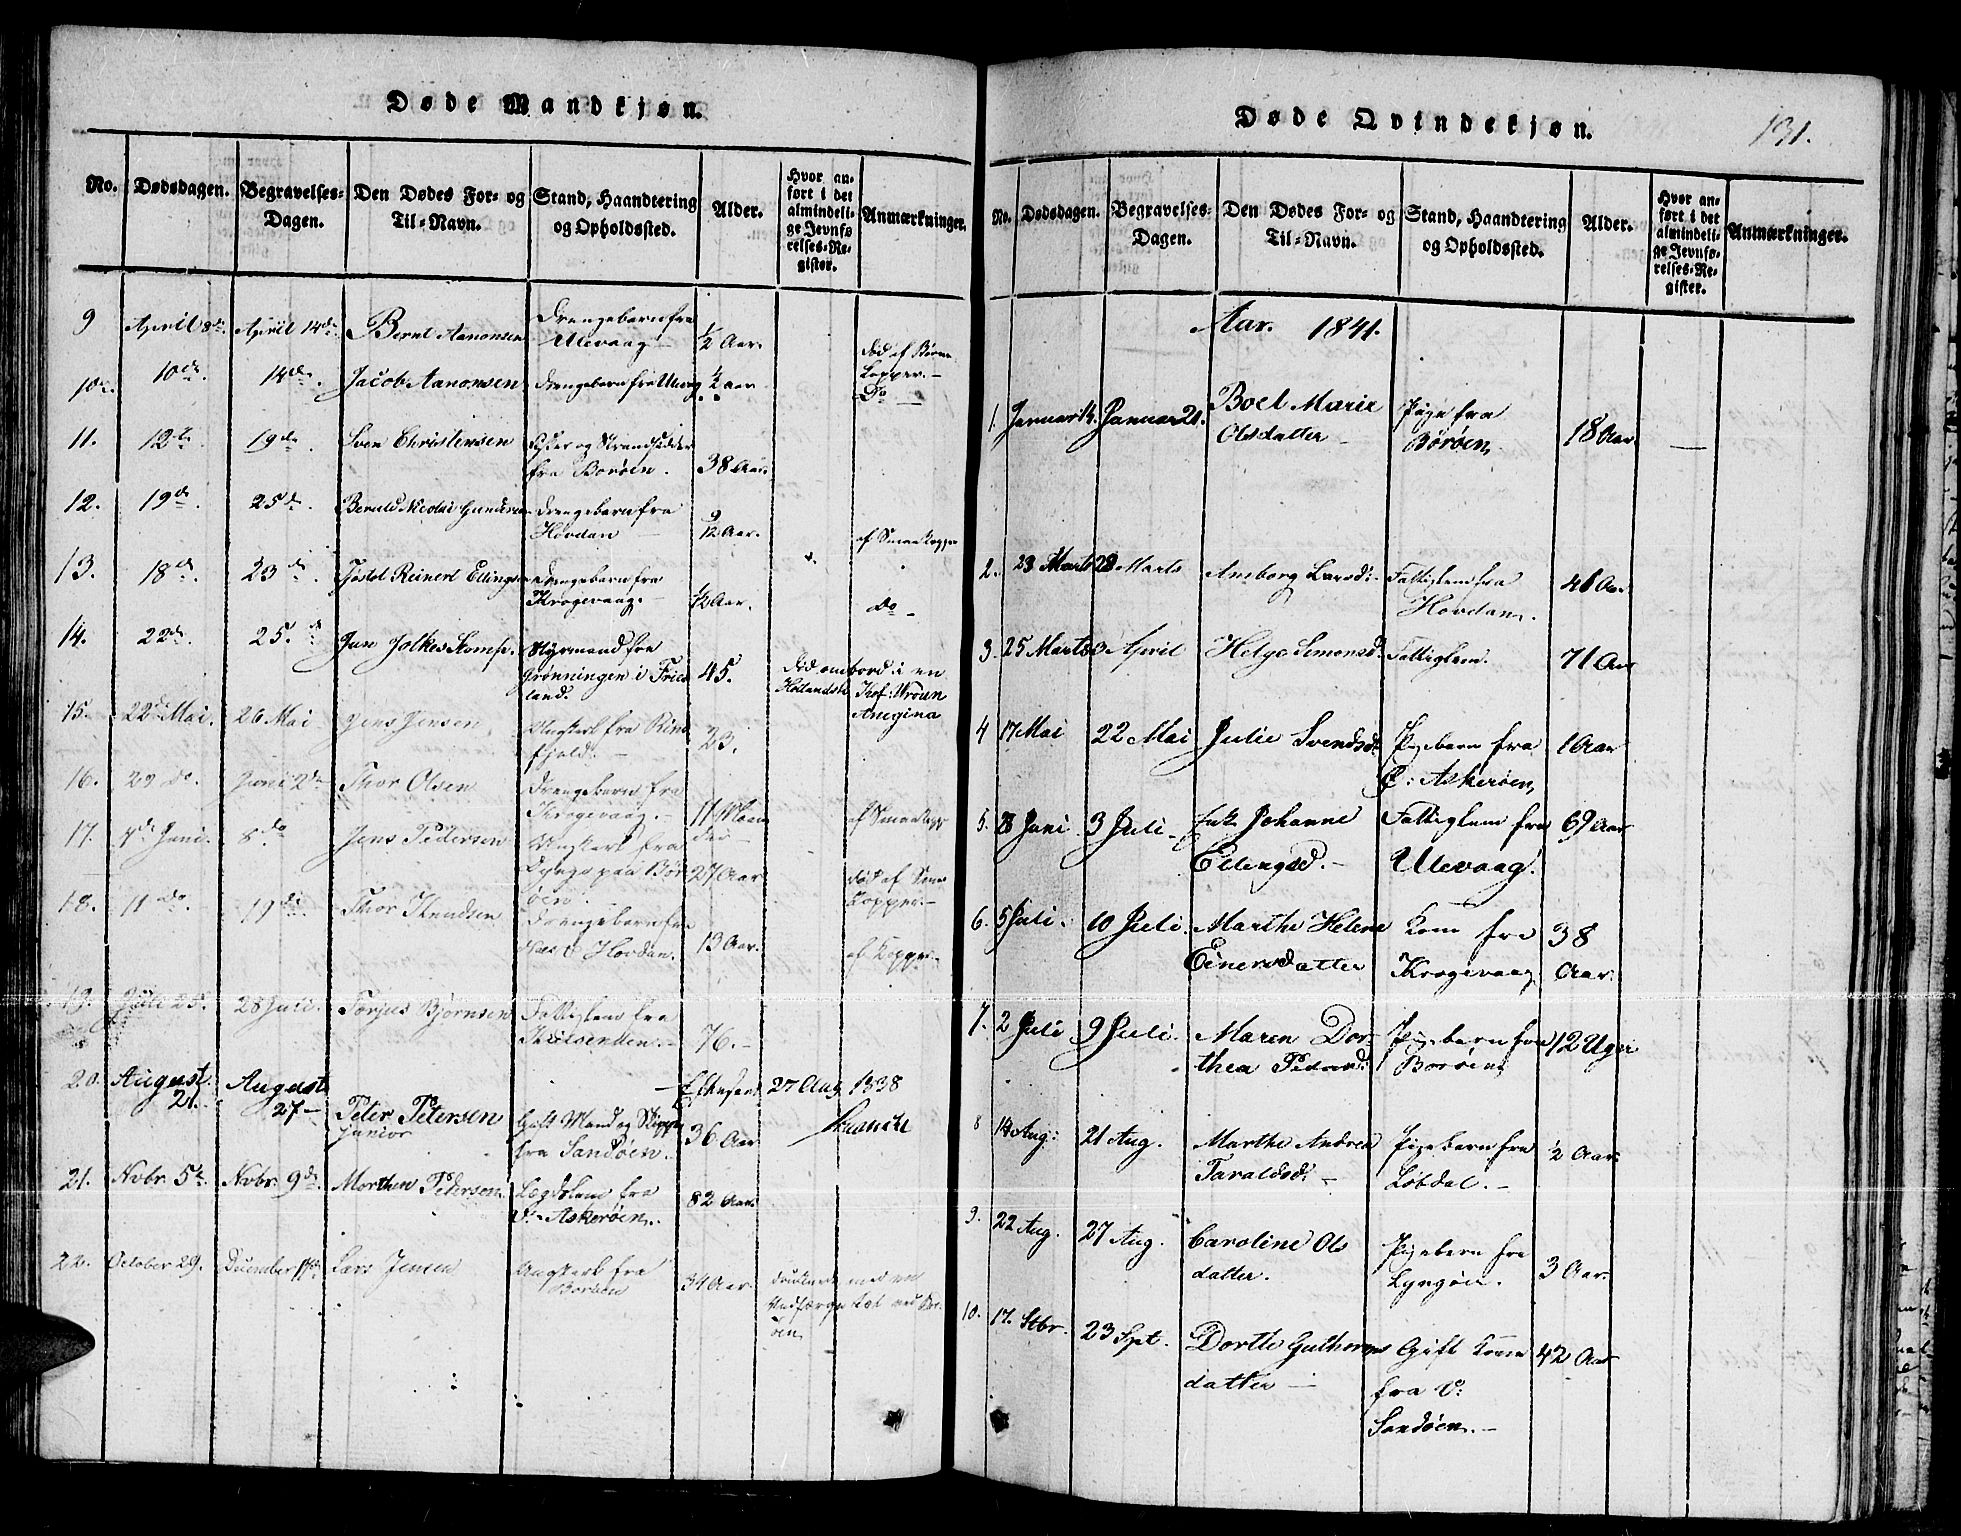 Døde Mandkjøn.
No. Dødsdagen. Begravelses-Dagen. Den Dødes For- og Til-Navn. Stand, Haandtering og Opholdssted. Alder. Hvor anført i det almindelige Jevnførelses-Register. Anmærkninger.
9 April 8de. April 14de Bernt Aanonsen Drengebarn fra Ulevaag ½ Aar. Død af Børne Kopper.
10. 10de. 14de. Jacob Aanonsen Drengebarn fra Ulevag ½ Aar Do
11. 12te 19de Sven Christensen Fisker og Strandsidder fra Borøen. 38 Aar.
12. 19de. 25de Berult Nicolai Gundersen Drengebarn fra Hovdan 9/12 Aar. af Smaakopper
13. 18de. 23de. Reinert Ellingsen Drengebarn fra Krogevaag. ½ Aar. Do
14. 22de. 25de. Jan Jolkes Styrmand fra Grønningen i Friesland. 45. Død ombord i en Hollandsk Kof: Vrouw Anegina
15. 22de Mai. 26 Mai Jens Jensen Ungkarl fra 23.
16. 29 do. Juni 2de Thor Olsen Drengebarn fra Krogevaag. 11 Maaneder af Smaakopper
17. 4de Juni. 8de Jens Pedersen Ungkarl fra Dynge paa Borøen. 27 Aar Død af Smaa Kopper.
18. 11 do. 19de Thor Knudsen Drengebarn fra Hovdan. 13 Aar. af Kopper
19. Juli 25. 28 Juli. Torjus Bjørnsen Fattiglem fra 76.
27 Aug 1838
20. August 21. August 27 Peter Petersen junior Gift Mand og Skipper fra Sandøen. 36 Aar
21. Nvbr. 5te Nvbr. 9de. Morthen Pedersen. Lægdslem fra V. Askerøen. 82 Aar
22. October 29. December Lars Jensen Ungkarl fra Borøen 34 Aar druknede med en
Døde Qvindekjøn.
131.
No. Dødsdagen. Begravelses-Dagen. Den Dødes For- og Til-Navn. Stand, Haandtering og Opholdssted. Alder. Hvor anført i det almindelige Jevnførelses-Register. Anmærkninger.
Aar. 1841.
1. Januar 14. Januar 21. Boel Marie Olsdatter Pige fra Borøen 18 Aar
2. 23 Marts 28 Marts Anborg Larsd: Fattiglem fra Hovdan. 48 Aar
3. 25 Marts 3 April Helge Simonsd. Fattiglem. 71 Aar
4 17 Mai 22 Mai Julie Svendsd: Pigebarn fra Ø: Askerøen 1 Aar
5. 28 Juni 3 Juli Enk. Johanne Ellengsd. Fattiglem fra Ulevaag. 69 Aar
6. 5 Juli. 10 Juli. Marthe Helene Einersdatter Kone fra Krogevaag 38 Aar.
7. 2 Juli 9 Juli. Maren Dorthea Pedersd. Pigebarn fra Borøen 12 Uger
8 14 Aug: 21 Aug. Marthe Andrea Taraldsd: Pigebarn fra Løbdal. ½ Aar
9. 22 Aug. 27 Aug. Caroline Olsdatter. Pigebarn fra Lyngøer. 3 Aar.
10. 17. Stbr. 23 Spt. Dorthe Guthormsdatter Gift Kone fra V: Sandøen. 42 Aar